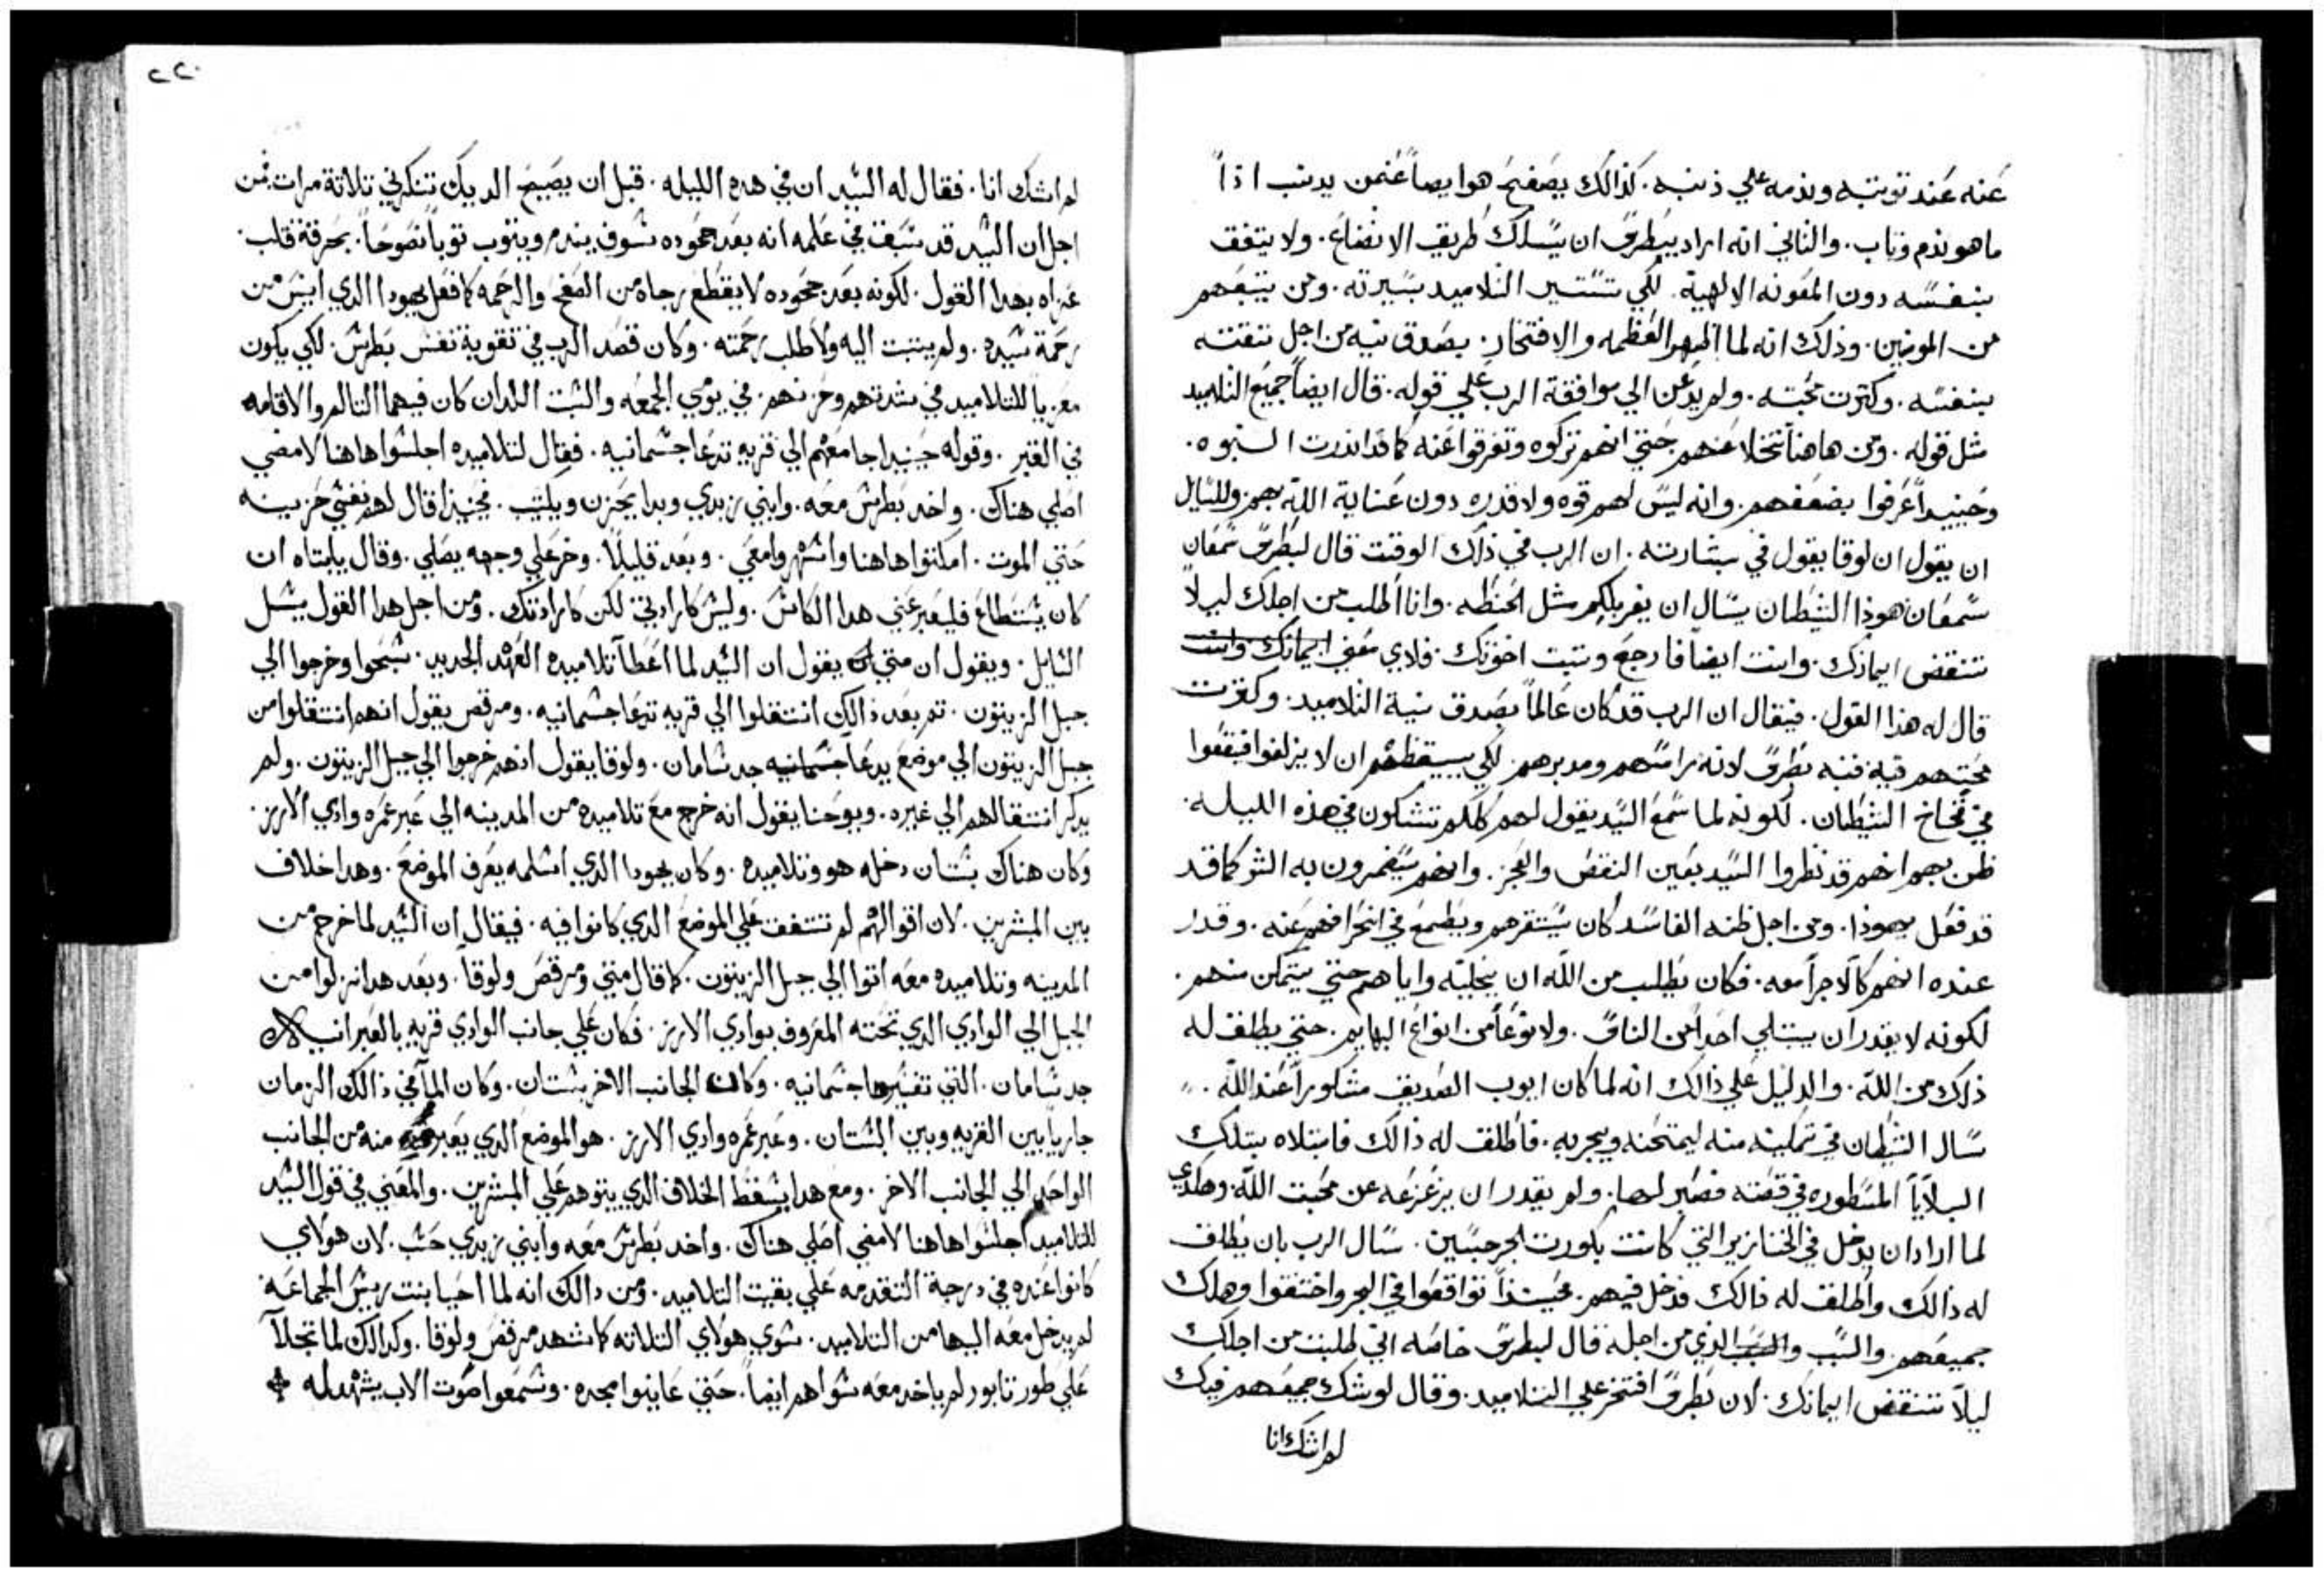 عنه عند توبته وندمه علي ذنبه. كذالك يصفح هو ايضاً عن من يدنب اذاً
ما هو ندم وتاب. والثاني انه اراد ببطرس ان يسلك طريق الاتضاع. ولا يتفق
بنفسه دون المعونه الالهية. لكي تستسير التلاميد بسيرته. ومن يتبعهم
من المومنين. وذلك انه لما اظهر العظمه والافتخار. بصدق نيه من اجل تقته
بنفسه. وكترت محبته. ولم يدعن الي موافقة الرب علي قوله. قال ايضاً جميع التلاميد
مثل قوله. ومن هاهنا تخلا عنهم حتي انهم تركوه وتفرقوا عنه كما قد اندرت النبوه.
وحينيداً عرفوا بضعفهم. وانه ليس لهم قوه ولا قدره دون عناية الله بهم. وللسايل
ان يقول ان لوقا يقول في بشارته. ان الرب في ذلك الوقت قال لبطرس سمعان
سمعان هوذا الشيطان يسال ان يغربلكم مثل الحنطه. وانا اطلب من اجلك ليلا
تنقض ايمانك. وانت ايضاً فارجع وتبت اخوتك. فلاي معني ايمانك وانت
قال له هذا القول. فيقال ان الرب قد كان عالماً بصدق نية التلاميد. وكترت
محبتهم فيه فنبه بطرس لانه راسهم ومدبرهم. لكي يستيقظهم ان لا يزلفوا فيقعوا
في فخاخ الشيطان. لكونه لما سمع السيد يقول لهم كلكم تشكون في هذه الليله.
ظن بهم انهم قد نظروا السيد بعين النقض والعجز. وانهم سيغمرون به الشر كما قد
قد فعل يهوذا. ومن اجل ظنه الفاسد كان يستقرهم ويطمع في انحرافهم عنه. وقدر
عنده انهم كالاجرا معه. فكان يطلب من الله ان يخليه واياهم حتي يتمكن منهم.
لكونه لا يقدر ان يبتلي احداً من الناس. ولا نوعاً من انواع البهايم. حتي يطلق له
ذلك من الله. والدليل علي ذالك انه لما كان ايوب الصديق مشكوراً عند الله.
سال الشيطان في تمكينه منه ليمتحنه ويجربه. فاطلق له ذالك فابتلاه بتلك
البلايا المسطوره في قصته فصبر لها. ولم يقدر ان يزعزعه عن محبت الله. وهكدي
لما اراد ان يدخل في الخنازير التي كانت بكورت الجرجسين. سال الرب بان يطلق
له ذالك واطلق له ذالك فدخل فيهم. فحينيذاً تواقعوا في البحر واختنقوا وهلك
جميعهم. والسبب والسبب الذي من اجله قال لبطرس خاصه اني طلبت من اجلك
ليلا تنقض ايمانك. لان بطرس افتخر علي التلاميد. وقال لو شك جميعهم فيك
لم اشك انا
٢٢٠
لم اشك انا. فقال له السيد ان في هده الليله. قبل ان يصيح الديك تنكرني تلاتة مرات فمن
اجل ان السيد قد سبقت في علمه انه بعد جحوده سوف يندم ويتوب توباً نصوحاً. بحرقة قلب.
عزاه بهدا القول. لكونه بعد جحوده لا يقطع رجاه من الصفح والرحمه كما فعل يهودا الدي ايس من
رحمة سيده. ولم يتبت اليه ولا طلب رحمته. وكان قصد الرب في تقوية نفس بطرس. لكي يكون
معزياً للتلاميد في شدتهم وحزنهم. في يومي الجمعه والسبت اللدان كان فيهما التالم والاقامه
في القبر. وقوله حينيداً جا معهم الي قريه تدعا جسمانيه. فقال لتلاميده اجلسوا هاهنا لامضي
اصلي هناك. واخد بطرس معه. وابني زبدي وبدا يحزن ويكتيب. فحينيداً قال لهم نفسي حزينه
حتي الموت. امكتوا هاهنا واسهروا معي. وبعد قليلاً. وخر علي وجهه يصلي. وقال ياابتاه ان
كان يستطاع فليعبر عني هدا الكاس. وليس كارادتي لكن كارادتك. ومن اجل هدا القول يسل
السايل. ويقول ان متي يقول ان السيد لما اعطا تلاميده العهد الجديد. سبحوا وخرجوا الي
جبل الزيتون. تم بعد ذالك انتقلوا الي قريه تدعا جسمانيه. ومرقص يقول انهم انتقلوا من
جبل الزيتون الي موضع يدعا جسمانيه جدسامان. ولوقا يقول انهم خرجوا الي جبل الزيتون. ولم
يدكر انتقالهم الي غيره. ويوحنا يقول انه خرج مع تلاميده من المدينه الي عبر غمره وادي الارز.
وكان هناك بستان دخله هو وتلاميده. وكان يهودا الدي اسلمه يعرف الموضع. وهدا خلاف
بين المبشرين. لان اقوالهم لم تتفق علي الموضع الدي كانوا فيه. فيقال ان السيد لما خرج من
المدينه وتلاميده معه اتوا الي جبل الزيتون. كما قال متي ومرقص ولوقا. وبعد هدا نزلوا من
الجبل الي الوادي الدي تحته المعروف بوادي الارز. فكان علي جانب الوادي قريه بالعبرانيه
جدسامان. التي تفسيرها جسمانيه. وكان الجانب الاخر بستان. وكان الما في ذالك الزمان
جارياً بين القريه وبين البستان. وعبر غمره وادي الارز. هو الموضع الدي يعبر منه من الجانب
الواحد الي الجانب الاخر. ومع هدا يسقط الخلاف الدي يتوهم علي المبشرين. والمعني في قول السيد
للتلاميد اجلسوا هاهنا لامضي اصلي هناك. واخد بطرس معه وابني زبدي حسب. لان هولاي
كانوا عنده في درجة التقدمه علي بقيت التلاميد. ومن دالك انه لما احيا بنت رييس الجماعه
لم يدخل معه اليها من التلاميد. سوي هولاي التلاته كما شهد مرقص ولوقا. وكدالك لما تجلا
علي طور تابور لم ياخد معه سواهم ايضاً. حتي عاينوا مجده. وسمعوا صوت الاب يشهد له